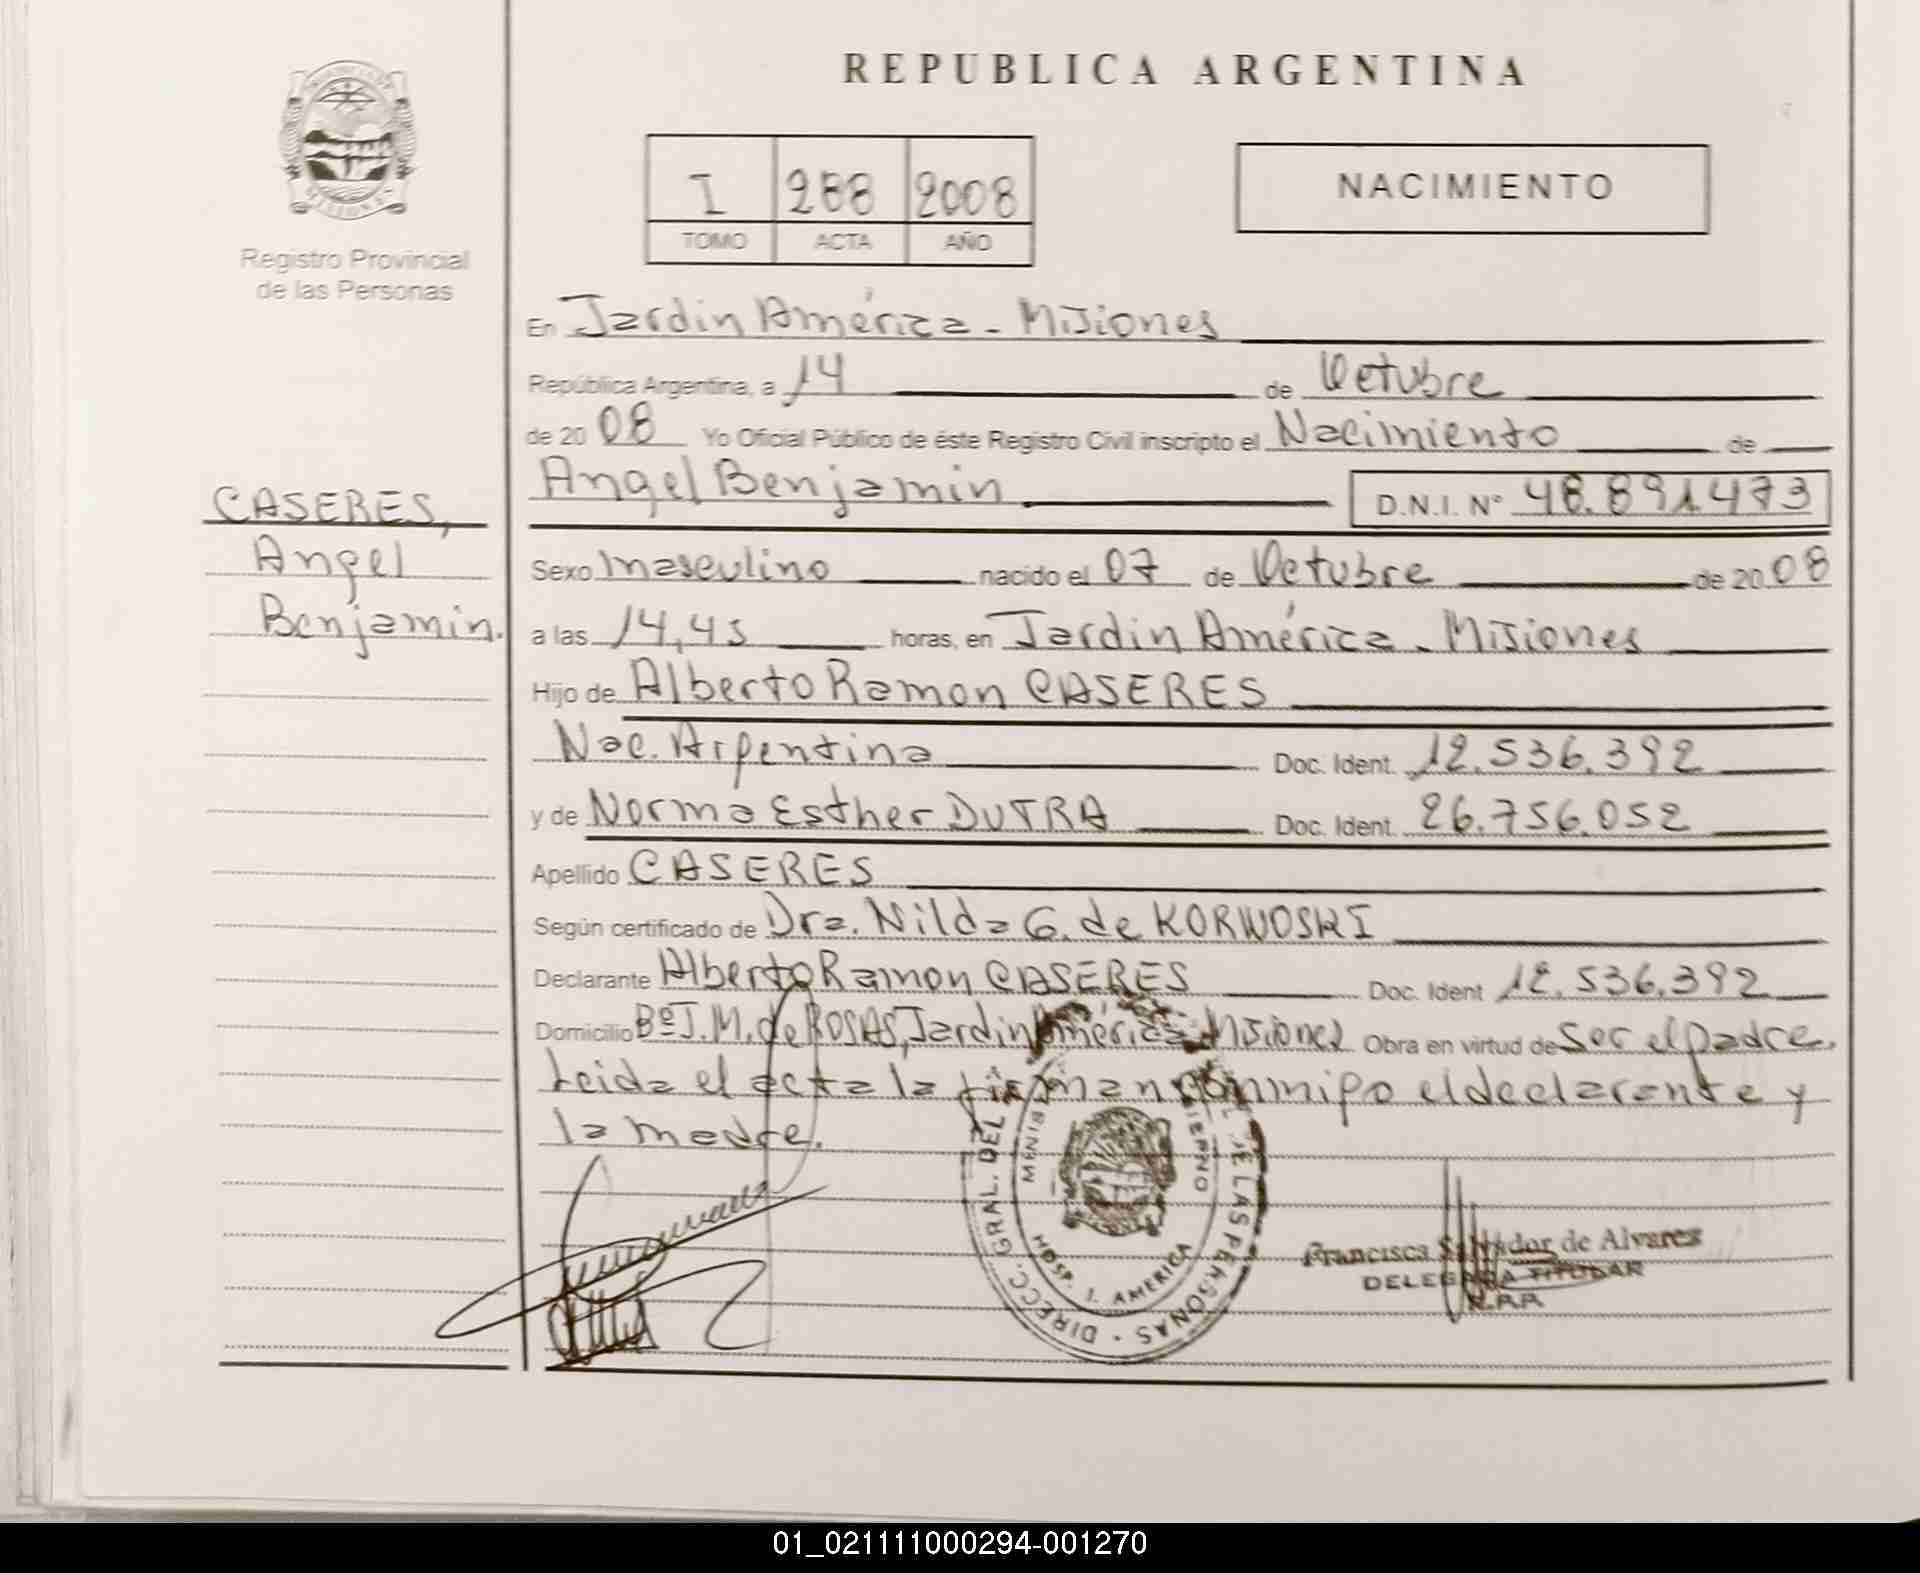 REPUBLICA ARGENTINA
I 288 2008
TOMO ACTA AÑO
NACIMIENTO
MISIONES
Registro Provincial
de las Personas
CASERES,
Angel
Benjamin.
En Jardin América - Misiones
República Argentina, a 14 de Octubre
de 2008 Yo Oficial Público de éste Registro Civil inscripto el Nacimiento de
Angel Benjamin D.N.I. N° 48.891473
Sexo masculino nacido el 07 de Octubre de 2008
a las 14,45 horas, en Jardin América - Misiones
Hijo de Alberto Ramon CASERES
Nac. Argentina Doc. Ident. 12.536.392
y de Norma Esther DUTRA Doc. Ident. 26.756.052
Apellido CASERES
Según certificado de Dra. Nilda G. de KORWOSKI
Declarante Alberto Ramon CASERES Doc. Ident 12.536.392
Domicilio Bº J.M. de ROSAS, Jardin América - Misiones Obra en virtud de Ser el padre.
Leida el acta la firman conmigo el declarante y
la madre.
DIRECC. GRAL. DEL DE LAS PERSONAS
HOSP. J. AMERICA
Francisca Salvador de Alvares
DELEGADA TITULAR
R.P.P.
01_021111000294-001270